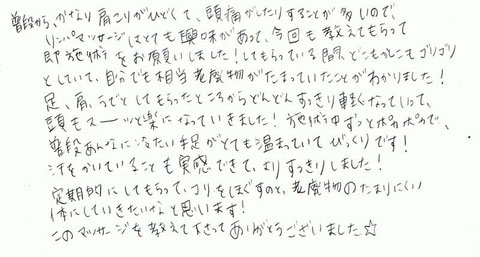 普段から、かなり肩こりがひどくて、頭痛がしたりすることが多いので、
リンパマッサージはとても興味があって、今回も教えてもらって
即施術をお願いしました！してもらっている間、どこもかしこもゴリゴリ
としていて、自分でも相当老廃物がたまっていたことがわかりました！
足、肩、うでとしてもらったところからどんどんすっきり軽くなっていって、
頭もスーッと楽になっていきました！施術中ずっとポカポカで、
普段あんなに冷たい手足がとても温まっていてびっくりです！
汗をかいていることも実感できて、よりすっきりしました！
定期的にしてもらって、コリをほぐすのと、老廃物のたまりにくい
体にしていきたいなと思います！
このマッサージを教えて下さってありがとうございました☆